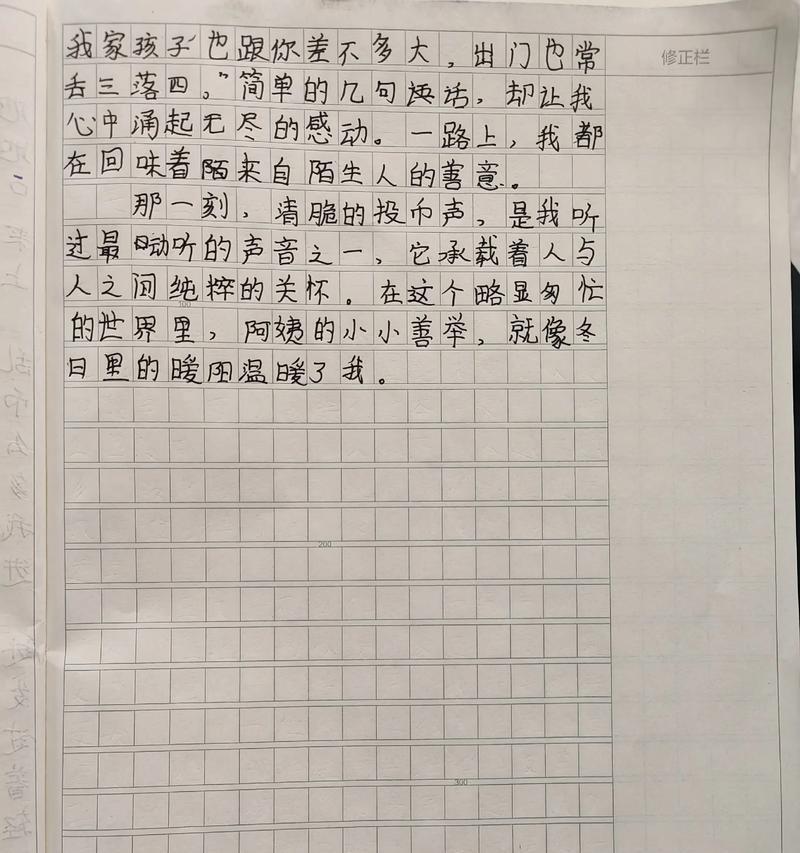 我家孩子也跟你差不多大，出门也常
修正栏
丢三落四。”简单的几句话，却让我
心中涌起无尽的感动。一路上，我都
在回味着陌来自陌生人的善意。
那一刻，清脆的投币声，是我听
过最动听的声音之一，它承载着人与
人之间纯粹的关怀。在这个略显匆忙
100
的世界里，阿姨的小小善举，就像冬
日里的暖阳温暖了我。
200
300